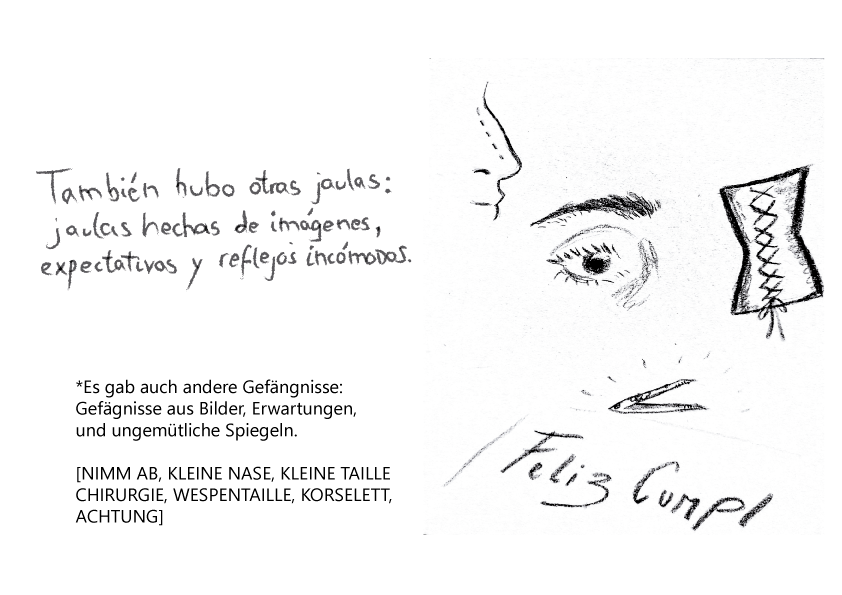 También hubo otras jaulas:
jaulas hechas de imágenes,
expectativas y reflejos incómodos.
*Es gab auch andere Gefängnisse:
Gefägnisse aus Bilder, Erwartungen,
und ungemütliche Spiegeln.
[NIMM AB, KLEINE NASE, KLEINE TAILLE
CHIRURGIE, WESPENTAILLE, KORSELETT,
ACHTUNG]
Feliz Cumpl